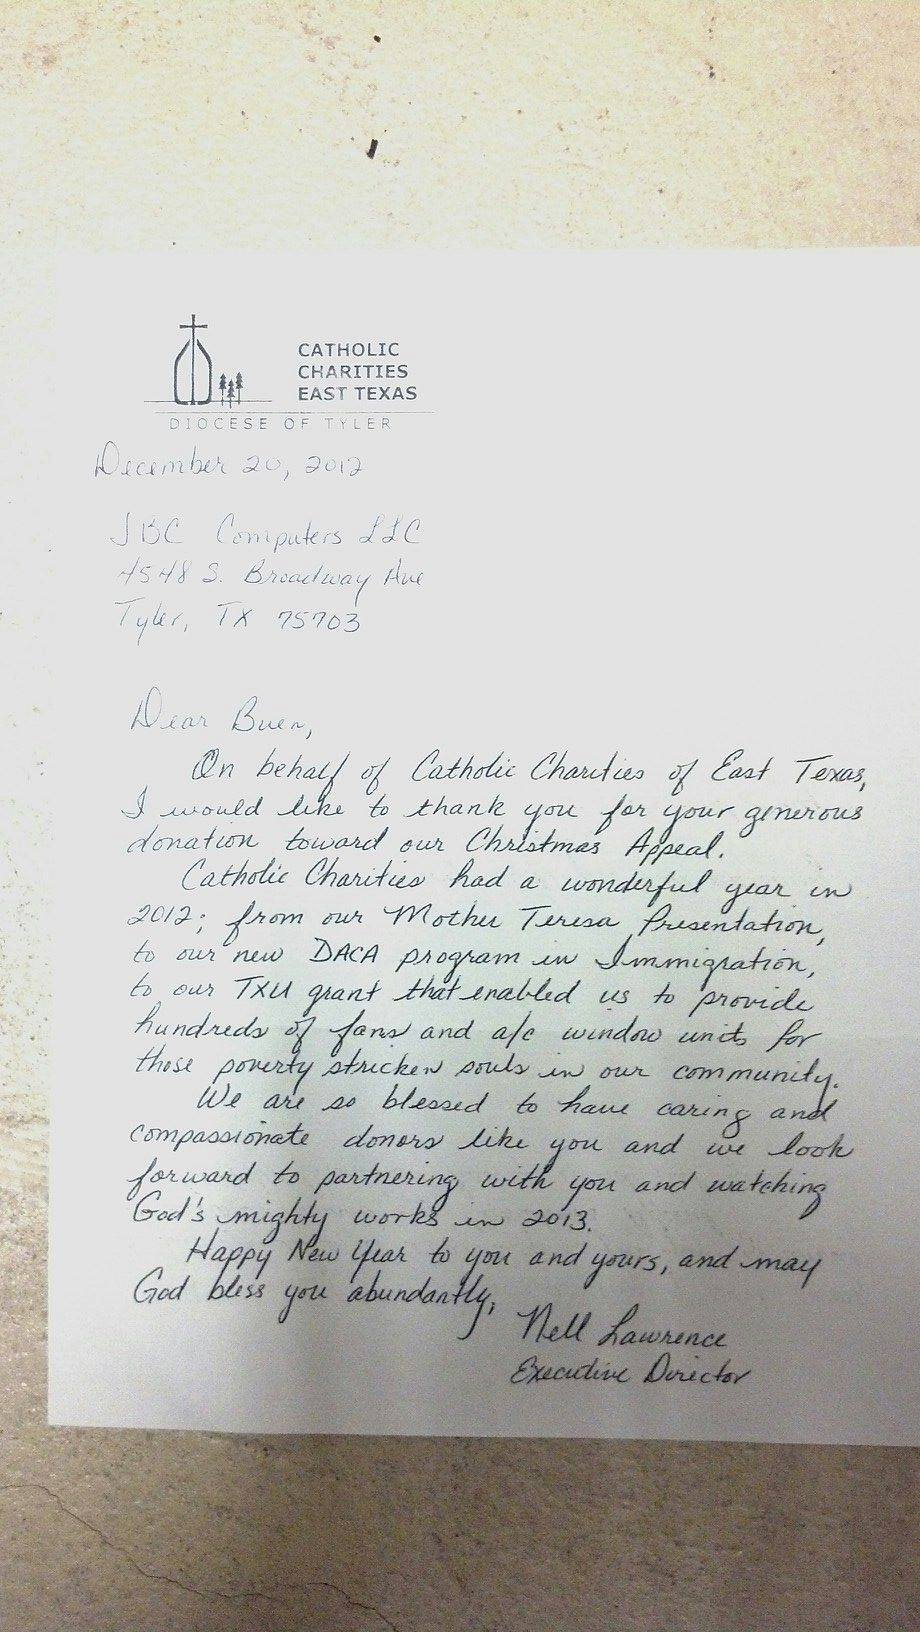 CATHOLIC
CHARITIES
EAST TEXAS
DIOCESE OF TYLER
December 20, 2012
JBC Computers LLC
4548 S. Broadway Ave
Tyler, TX 75703
Dear Buen,
On behalf of Catholic Charities of East Texas,
I would like to thank you for your generous
donation toward our Christmas Appeal.
Catholic Charities had a wonderful year in
2012; from our Mother Teresa Presentation,
to our new DACA program in Immigration,
to our TXU grant that enabled us to provide
hundreds of fans and a/c window units for
those poverty stricken souls in our community.
We are so blessed to have caring and
compassionate donors like you and we look
forward to partnering with you and watching
God's mighty works in 2013.
Happy New Year to you and yours, and may
God bless you abundantly,
Nell Lawrence
Executive Director